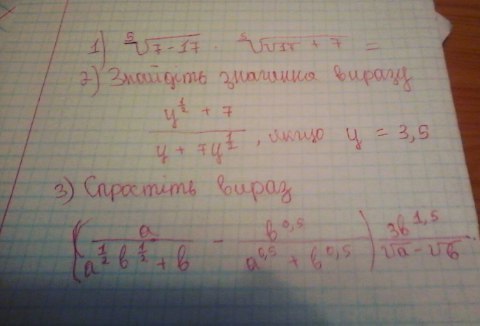 1) ⁵√(7 - 17) · ⁵√(√17 + 7) =
2) Знайдіть значення виразу
(y^(1/2) + 7) / (y + 7y^(1/2)), якщо y = 3,5
3) Спростіть вираз
(a / (a^(1/2) b^(1/2) + b) - b^0,5 / (a^0,5 + b^0,5)) 3b^1,5 / (√a - √b).